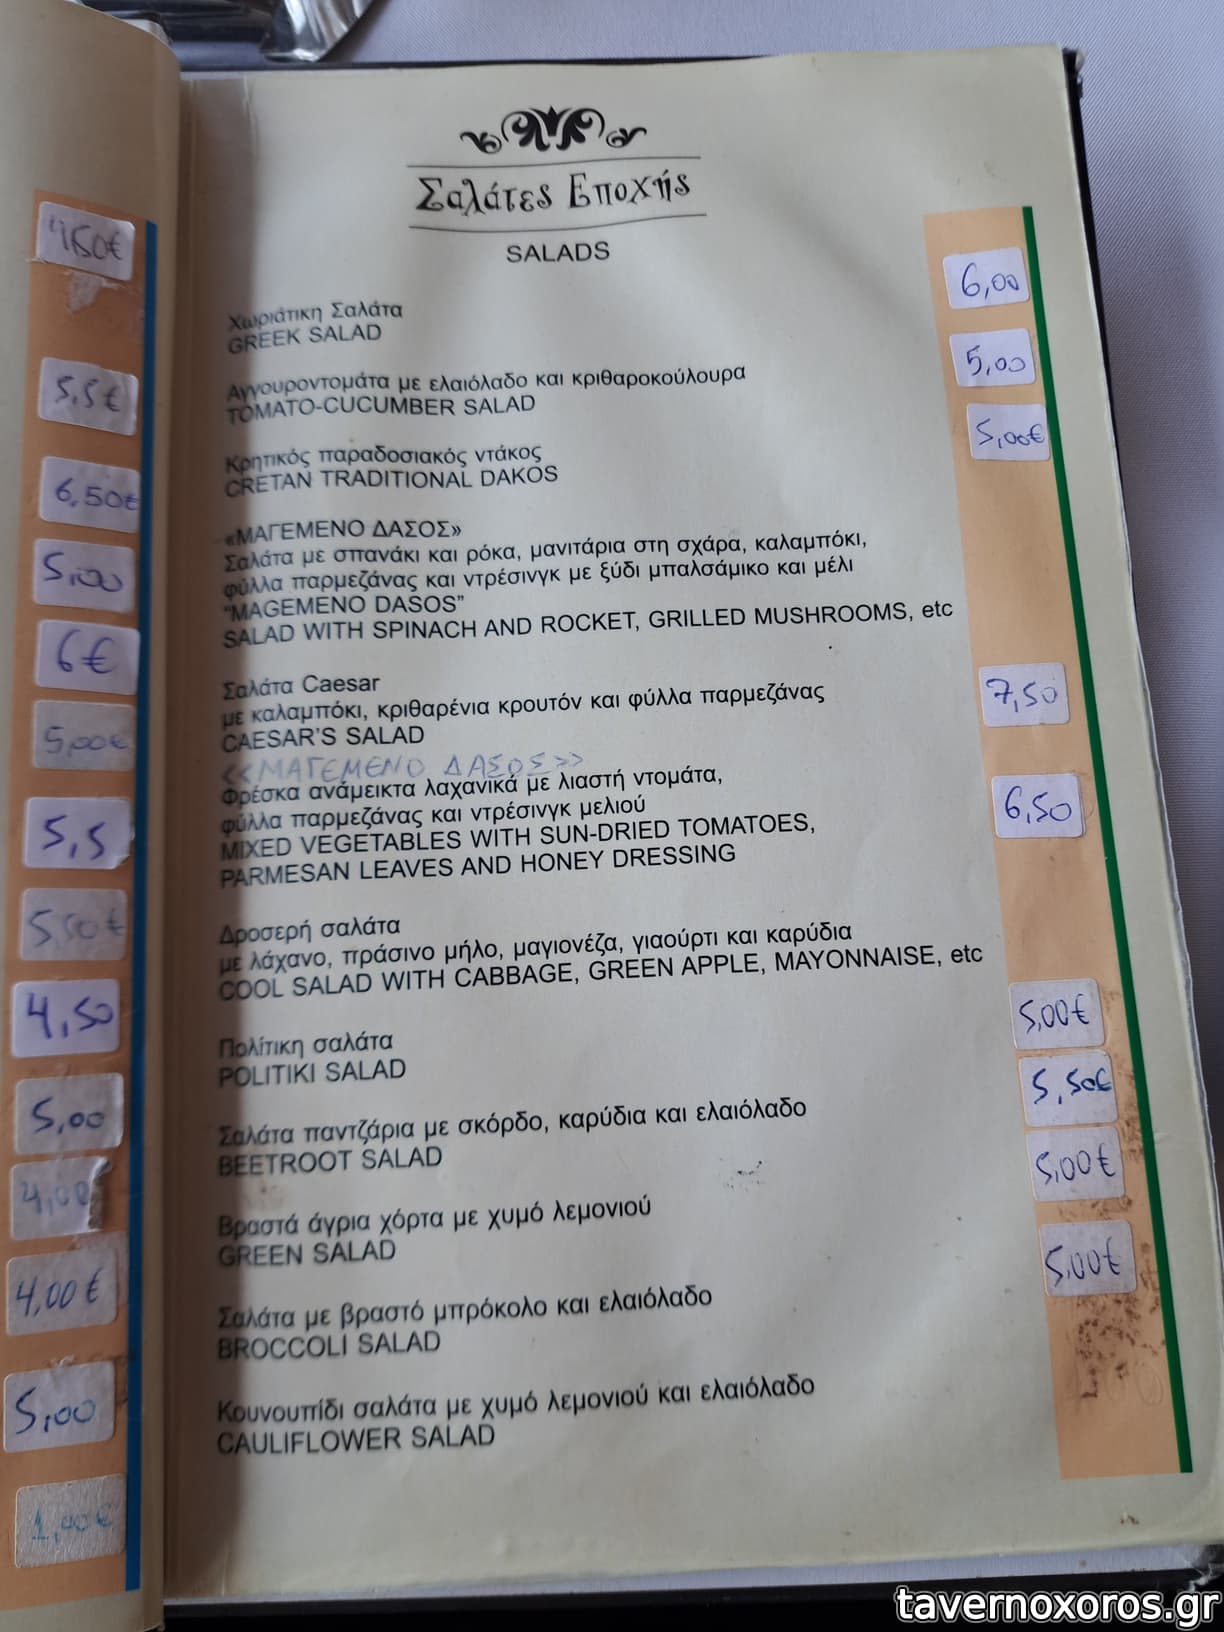 Σαλάτες Εποχής
SALADS
Χωριάτικη Σαλάτα
GREEK SALAD
6,00
Αγγουροντομάτα με ελαιόλαδο και κριθαροκούλουρα
TOMATO-CUCUMBER SALAD
5,00
Κρητικός παραδοσιακός ντάκος
CRETAN TRADITIONAL DAKOS
5,00€
«ΜΑΓΕΜΕΝΟ ΔΑΣΟΣ»
Σαλάτα με σπανάκι και ρόκα, μανιτάρια στη σχάρα, καλαμπόκι,
φύλλα παρμεζάνας και ντρέσινγκ με ξύδι μπαλσάμικο και μέλι
"MAGEMENO DASOS"
SALAD WITH SPINACH AND ROCKET, GRILLED MUSHROOMS, etc
Σαλάτα Caesar
με καλαμπόκι, κριθαρένια κρουτόν και φύλλα παρμεζάνας
CAESAR'S SALAD
7,50
<<ΜΑΓΕΜΕΝΟ ΔΑΣΟΣ>>
Φρέσκα ανάμεικτα λαχανικά με λιαστή ντομάτα,
φύλλα παρμεζάνας και ντρέσινγκ μελιού
MIXED VEGETABLES WITH SUN-DRIED TOMATOES,
PARMESAN LEAVES AND HONEY DRESSING
6,50
Δροσερή σαλάτα
με λάχανο, πράσινο μήλο, μαγιονέζα, γιαούρτι και καρύδια
COOL SALAD WITH CABBAGE, GREEN APPLE, MAYONNAISE, etc
Πολίτικη σαλάτα
POLITIKI SALAD
5,00€
Σαλάτα παντζάρια με σκόρδο, καρύδια και ελαιόλαδο
BEETROOT SALAD
5,50€
Βραστά άγρια χόρτα με χυμό λεμονιού
GREEN SALAD
5,00€
Σαλάτα με βραστό μπρόκολο και ελαιόλαδο
BROCCOLI SALAD
5,00€
Κουνουπίδι σαλάτα με χυμό λεμονιού και ελαιόλαδο
CAULIFLOWER SALAD
4,50€
5,5€
6,50€
5,00
6€
5,00€
5,5
5,50€
4,50
5,00
4,00
4,00€
5,00
tavernoxoros.gr